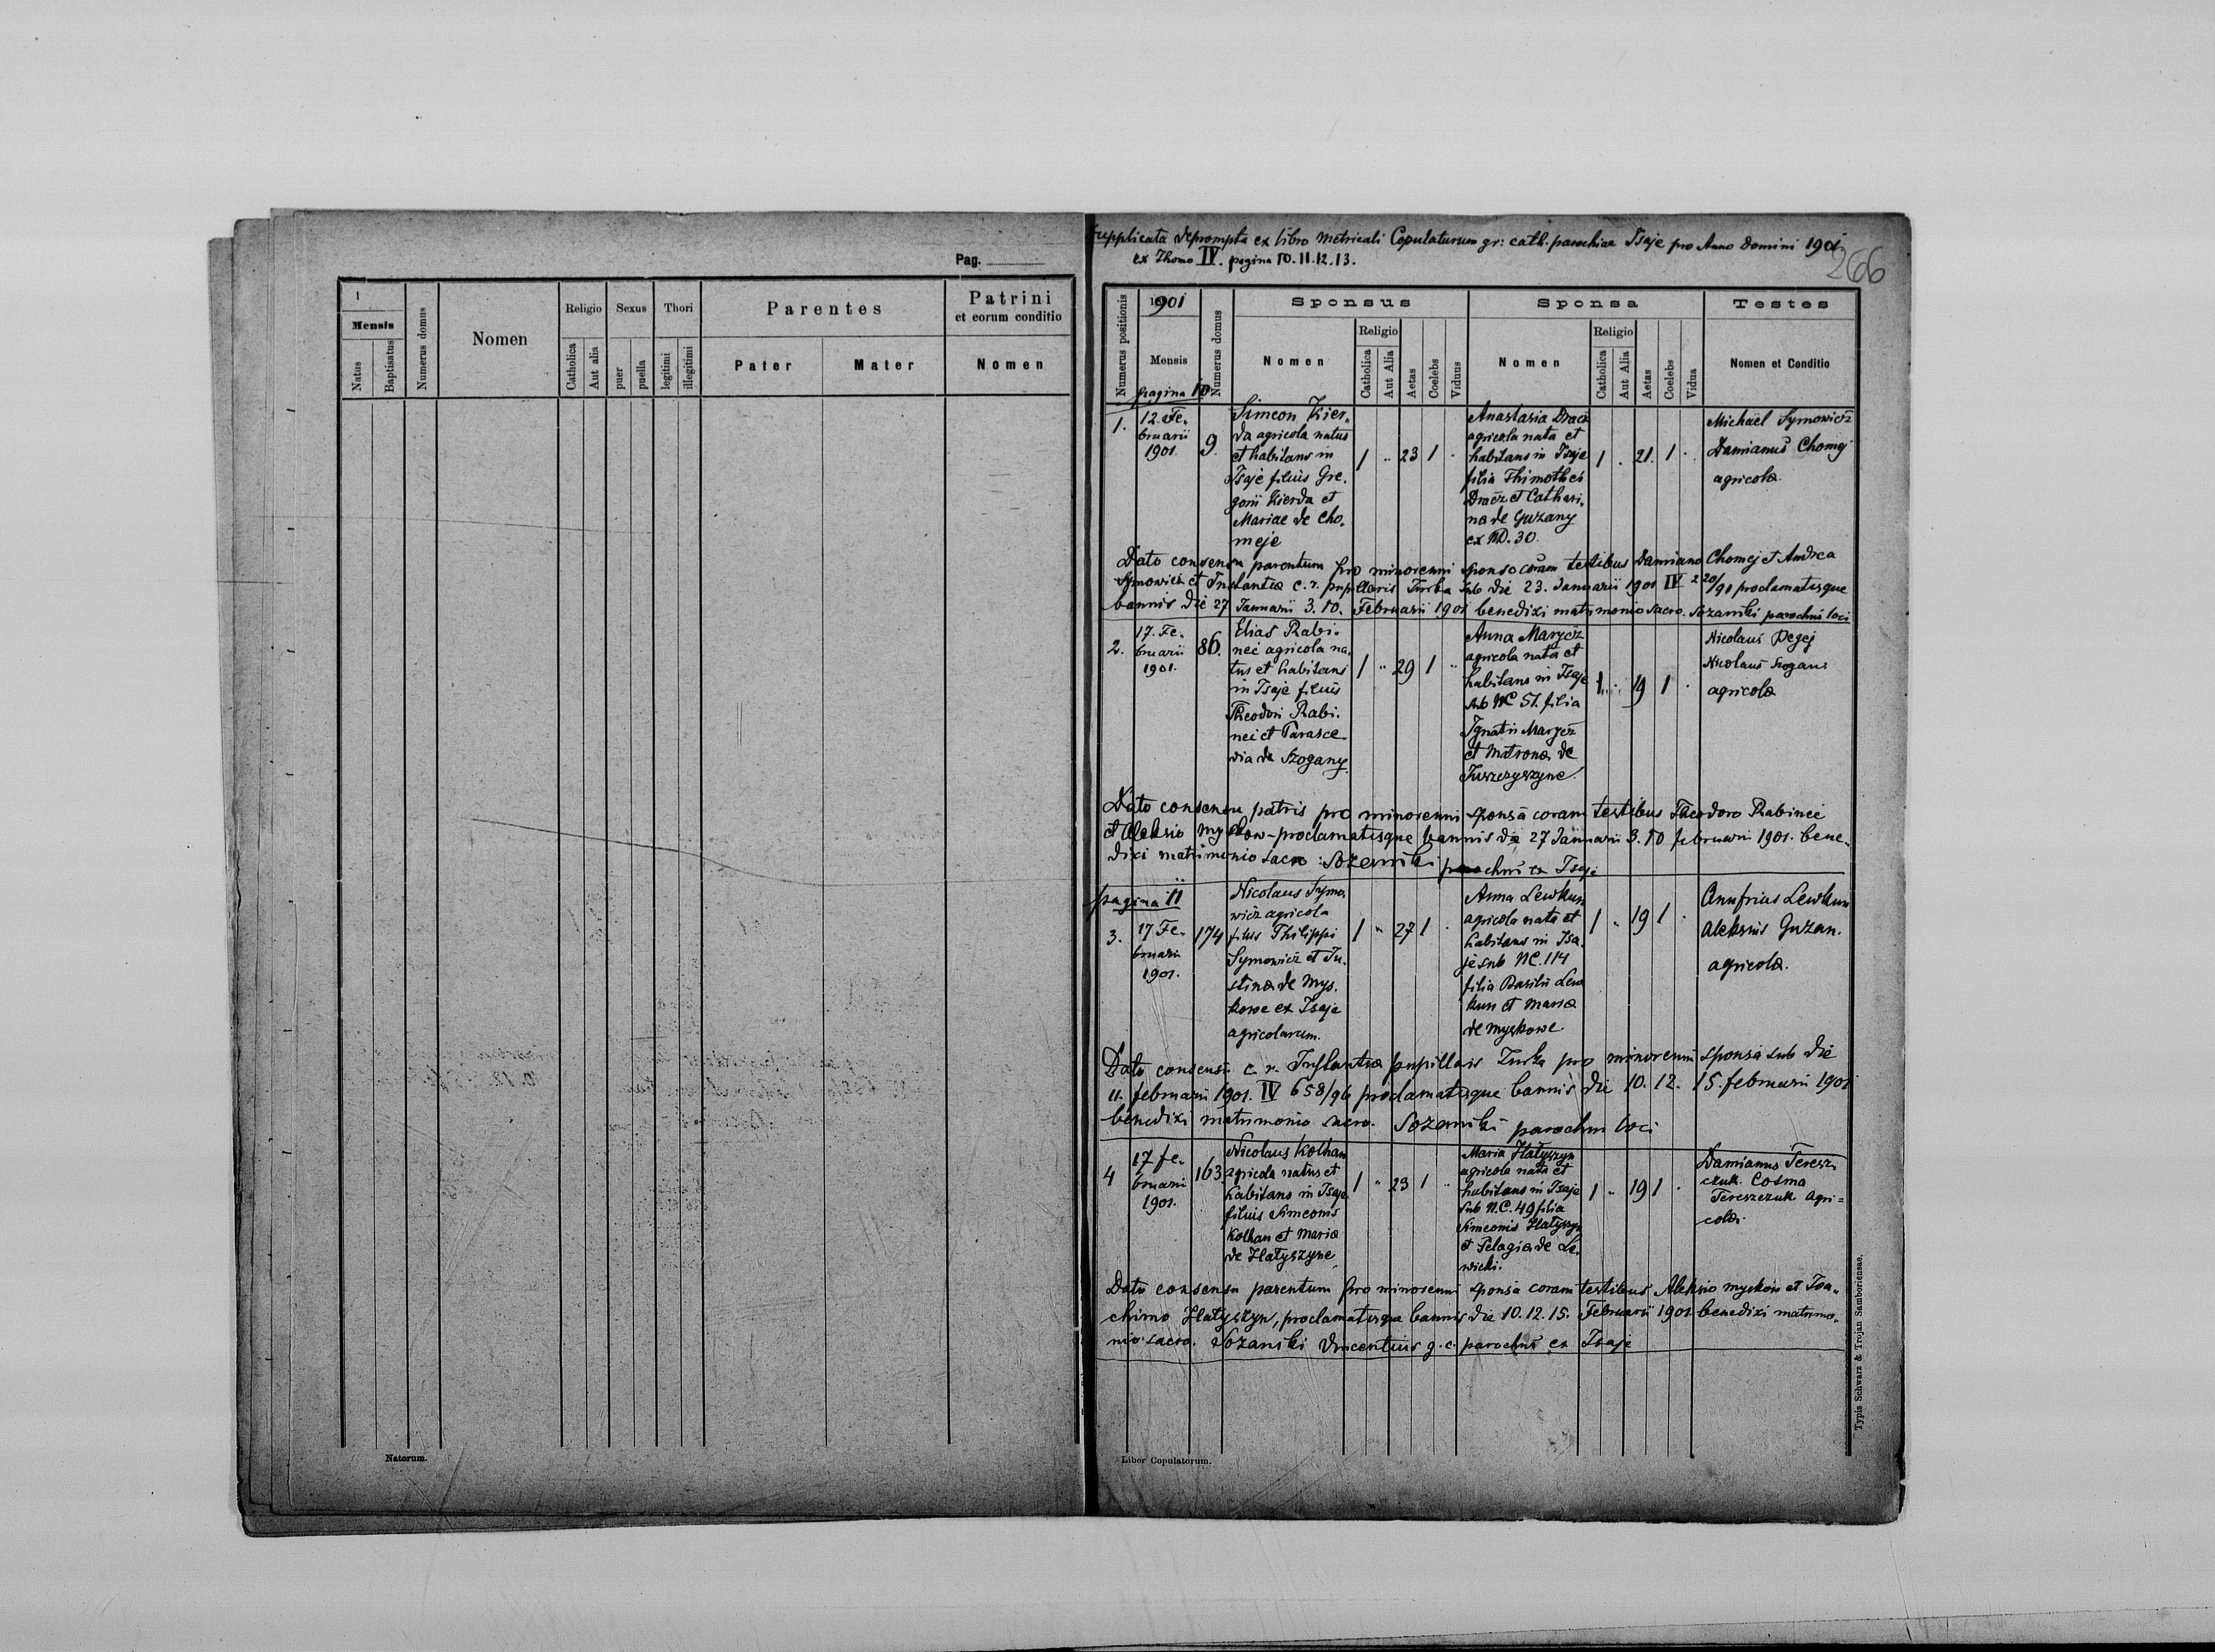 Pag.
1
Mensis
Natus
Baptisatus
Numerus domus
Nomen
Religio
Catholica
Aut alia
Sexus
puer
puella
Thori
legitimi
illegitimi
Parentes
Pater
Mater
Patrini
et eorum conditio
Nomen
Natorum.
Dupplicata deprompta ex libro Metricali Copulatorum gr: cath. parochiae Isaje pro Anno Domini 1901
ex Thomo IV. pagina 10. 11. 12. 13.
266
Numerus positionis
1901
Mensis
pagina 10
Numerus domus
Sponsus
Nomen
Religio
Catholica
Aut Alia
Aetas
Coelebs
Viduus
Sponsa
Nomen
Religio
Catholica
Aut Alia
Aetas
Coelebs
Vidua
Testes
Nomen et Conditio
1.
12. Fe-
bruarii
1901.
9.
Simeon Kier-
da agricola natus
et habitans in
Isaje filius Gre-
gorii Kierda et
Mariae de Cho-
meje
1 " 23 1 "
Anastasia Dracz
agricola nata et
habitans in Isaje
filia Thimothei
Dracz et Cathari-
na de Guzany
ex ND. 30.
1 . 21. 1 .
Michael Symowicz
Damianus Chomej
agricolæ
Dato consensu parentum pro minorenni sponso coram testibus Damiano Chomej et Andrea
Symowicz et Instantiæ c. r. pupillaris Turka sub die 23. Januarii 1901 IV 220/91 proclamatisque
bannis die 27 Januarii 3. 10. Februarii 1901 benedixi matrimonio sacro. Sozanski parochus loci
2.
17. Fe-
bruarii
1901.
86.
Elias Rabi-
nec agricola na-
tus et habitans
in Isaje filius
Theodori Rabi-
nei et Parasce-
via de Szogany.
1 " 29 1 "
Anna Marycz
agricola nata et
habitans in Isaje
sub NC 51. filia
Ignatii Marycz
et Matronæ de
Juszczyszyne.
1 . 19 1 .
Nicolaus Degej
Nicolaus Szogan
agricolæ
Dato consensu patris pro minorenni sponsa coram testibus Theodoro Rabinec
et Aleksio Myskow - proclamatisque bannis die 27 Januarii 3. 10 februarii 1901. bene-
dixi matrimonio sacro: Sozanski parochus ex Isaje
pagina 11
3.
17 Fe-
bruarii
1901.
174
Nicolaus Symo-
wicz agricola
filius Philippi
Symowicz et Ju-
stinæ de Mys-
kowe ex Isaje
agricolarum.
1 " 27 1 .
Anna Lewkun
agricola nata et
habitans in Isa-
je sub NC. 114
filia Basilii Lew
kun et Mariæ
de Myskowe
1 " 19 1 .
Onufrius Lewkun
Aleksius Guzan.
agricolæ.
Dato consensu c. r. Instantiæ pupillaris Turka pro minorenni sponsa sub die
11. februarii 1901. IV 658/96 proclamatisque bannis die 10. 12. 15. februarii 1901
benedixi matrimonio sacro. Sozanski parochus loci
4
17 fe-
bruarii
1901.
163
Nicolaus Kolhan
agricola natus et
habitans in Isaje
filius Simeonis
Kolhan et Mariæ
de Hatyszyne.
1 " 23 1 "
Maria Hatyszyn
agricola nata et
habitans in Isaje
sub N.C. 49 filia
Simeonis Hatyszyn
et Pelagiæ de Le-
wicki.
1 " 19 1 .
Damianus Teresz-
czuk. Cosma
Tereszczuk Agri=
colæ.
Dato consensu parentum pro minorenni sponsa coram testibus Aleksio Myskow et Joa-
chimo Hatyszyn, proclamatisque bannis die 10. 12. 15. Februarii 1901 benedixi matrimo-
nio sacro. Sozanski Vincentius g. c. parochus ex Isaje
Liber Copulatorum.
Typis Schwarz & Trojan Samboriensae.